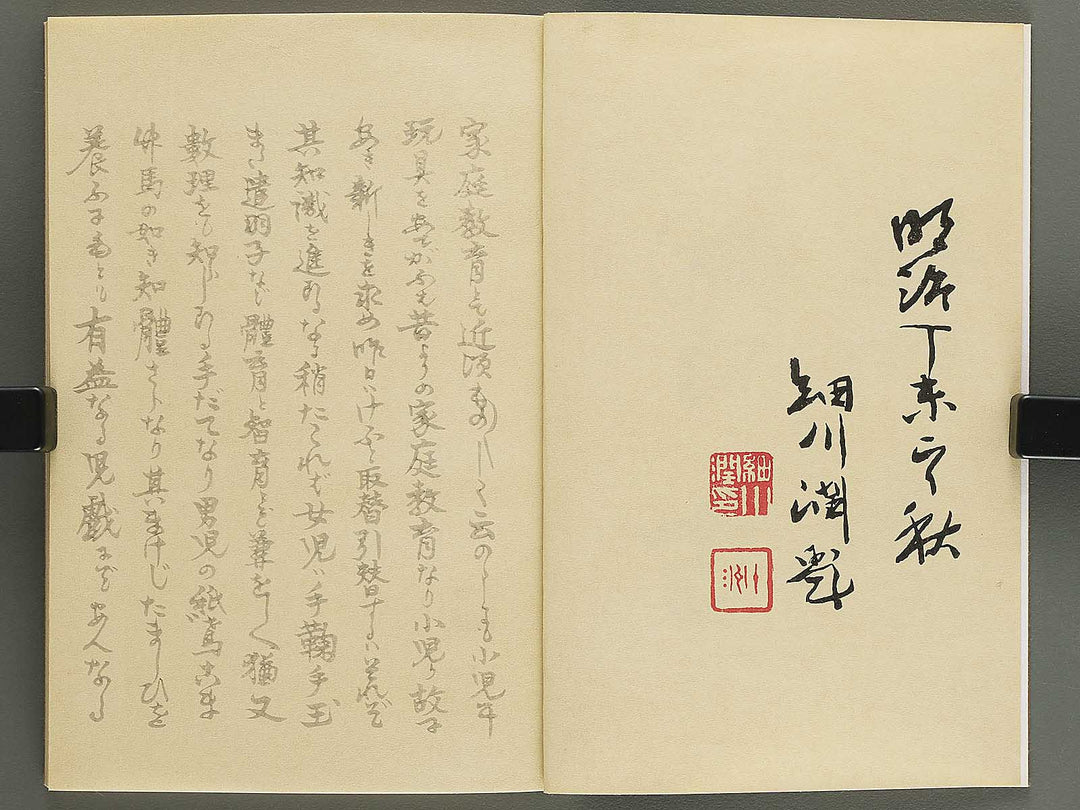 明治丁未之秋
細川潤
細川潤印
洲
家庭教育を近頃あ しく云のゝしるも小児に
玩具をあてがふも昔よりの家庭教育なり小児ら故に
あき新しきを求め昨日けふと取替引替するハそれぞ
其知識を進 るなる稍たくれも女児ハ手鞠手玉
また遣羽子など體育と智育とを 猶又
數理をも知しむる手だてなり男児の紙鳶こま
竹馬の如き知體さらなり其まけじたましひを
養ふにもとも有益なる児戯にぞあんなる